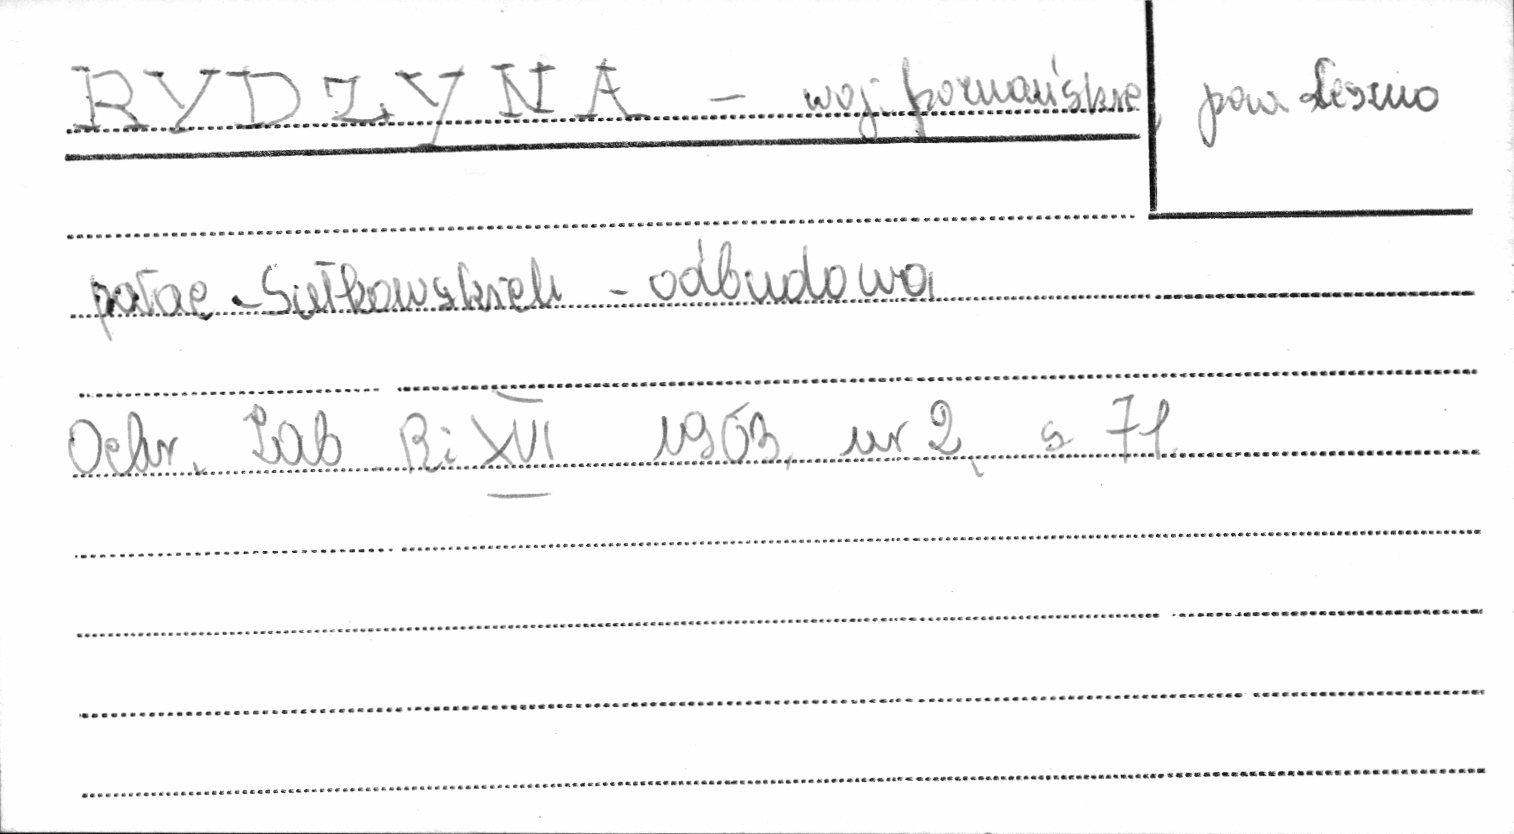 RYDZYNA – woj. poznańskie, pow. Leszno
pałac Sułkowskich – odbudowa
Ochr. Zab. R: XVI 1963, nr 2, s 71.